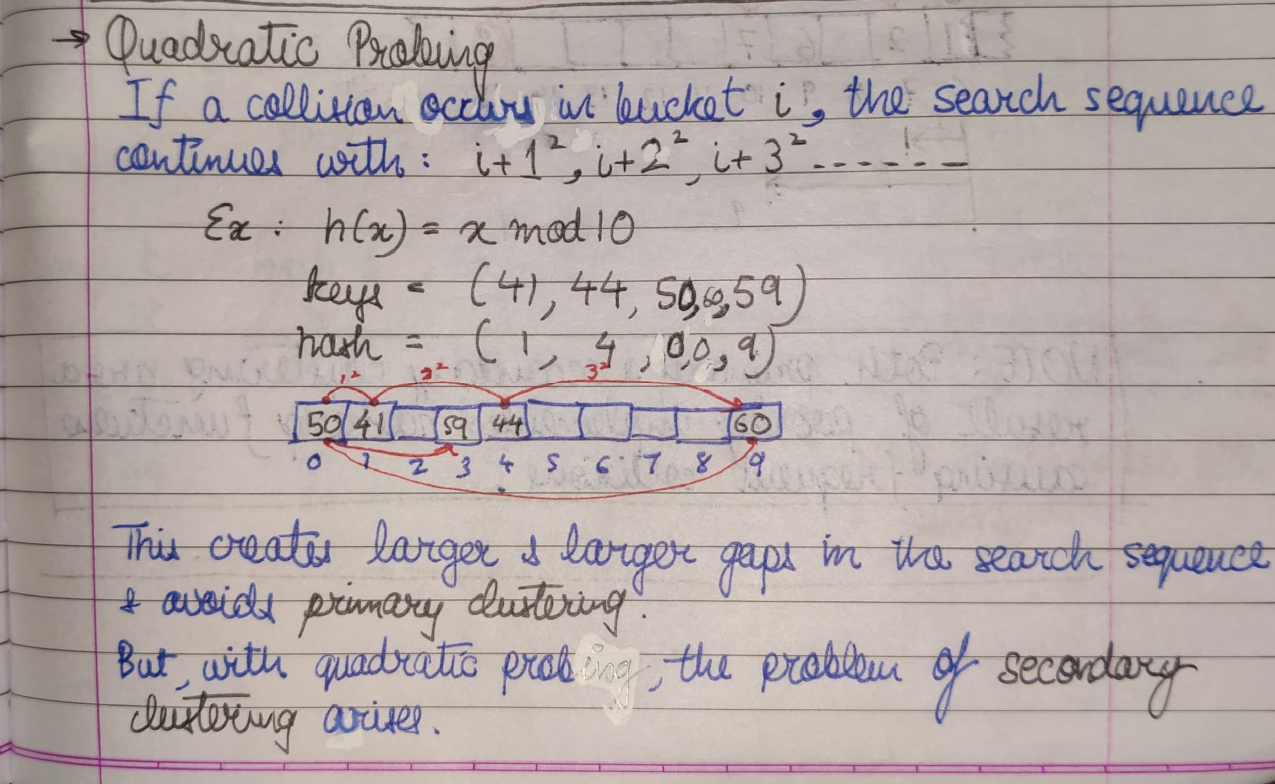 → Quadratic Probing
If a collision occurs in bucket i, the search sequence
continues with: i+1², i+2², i+3² ------
Ex: h(x) = x mod 10
keys = (41, 44, 50, 60, 59)
hash = (1, 4, 0, 0, 9)
1² 2² 3²
50 41 59 44 60
0 1 2 3 4 5 6 7 8 9
This creates larger & larger gaps in the search sequence
& avoids primary clustering.
But, with quadratic probing, the problem of secondary
clustering arises.